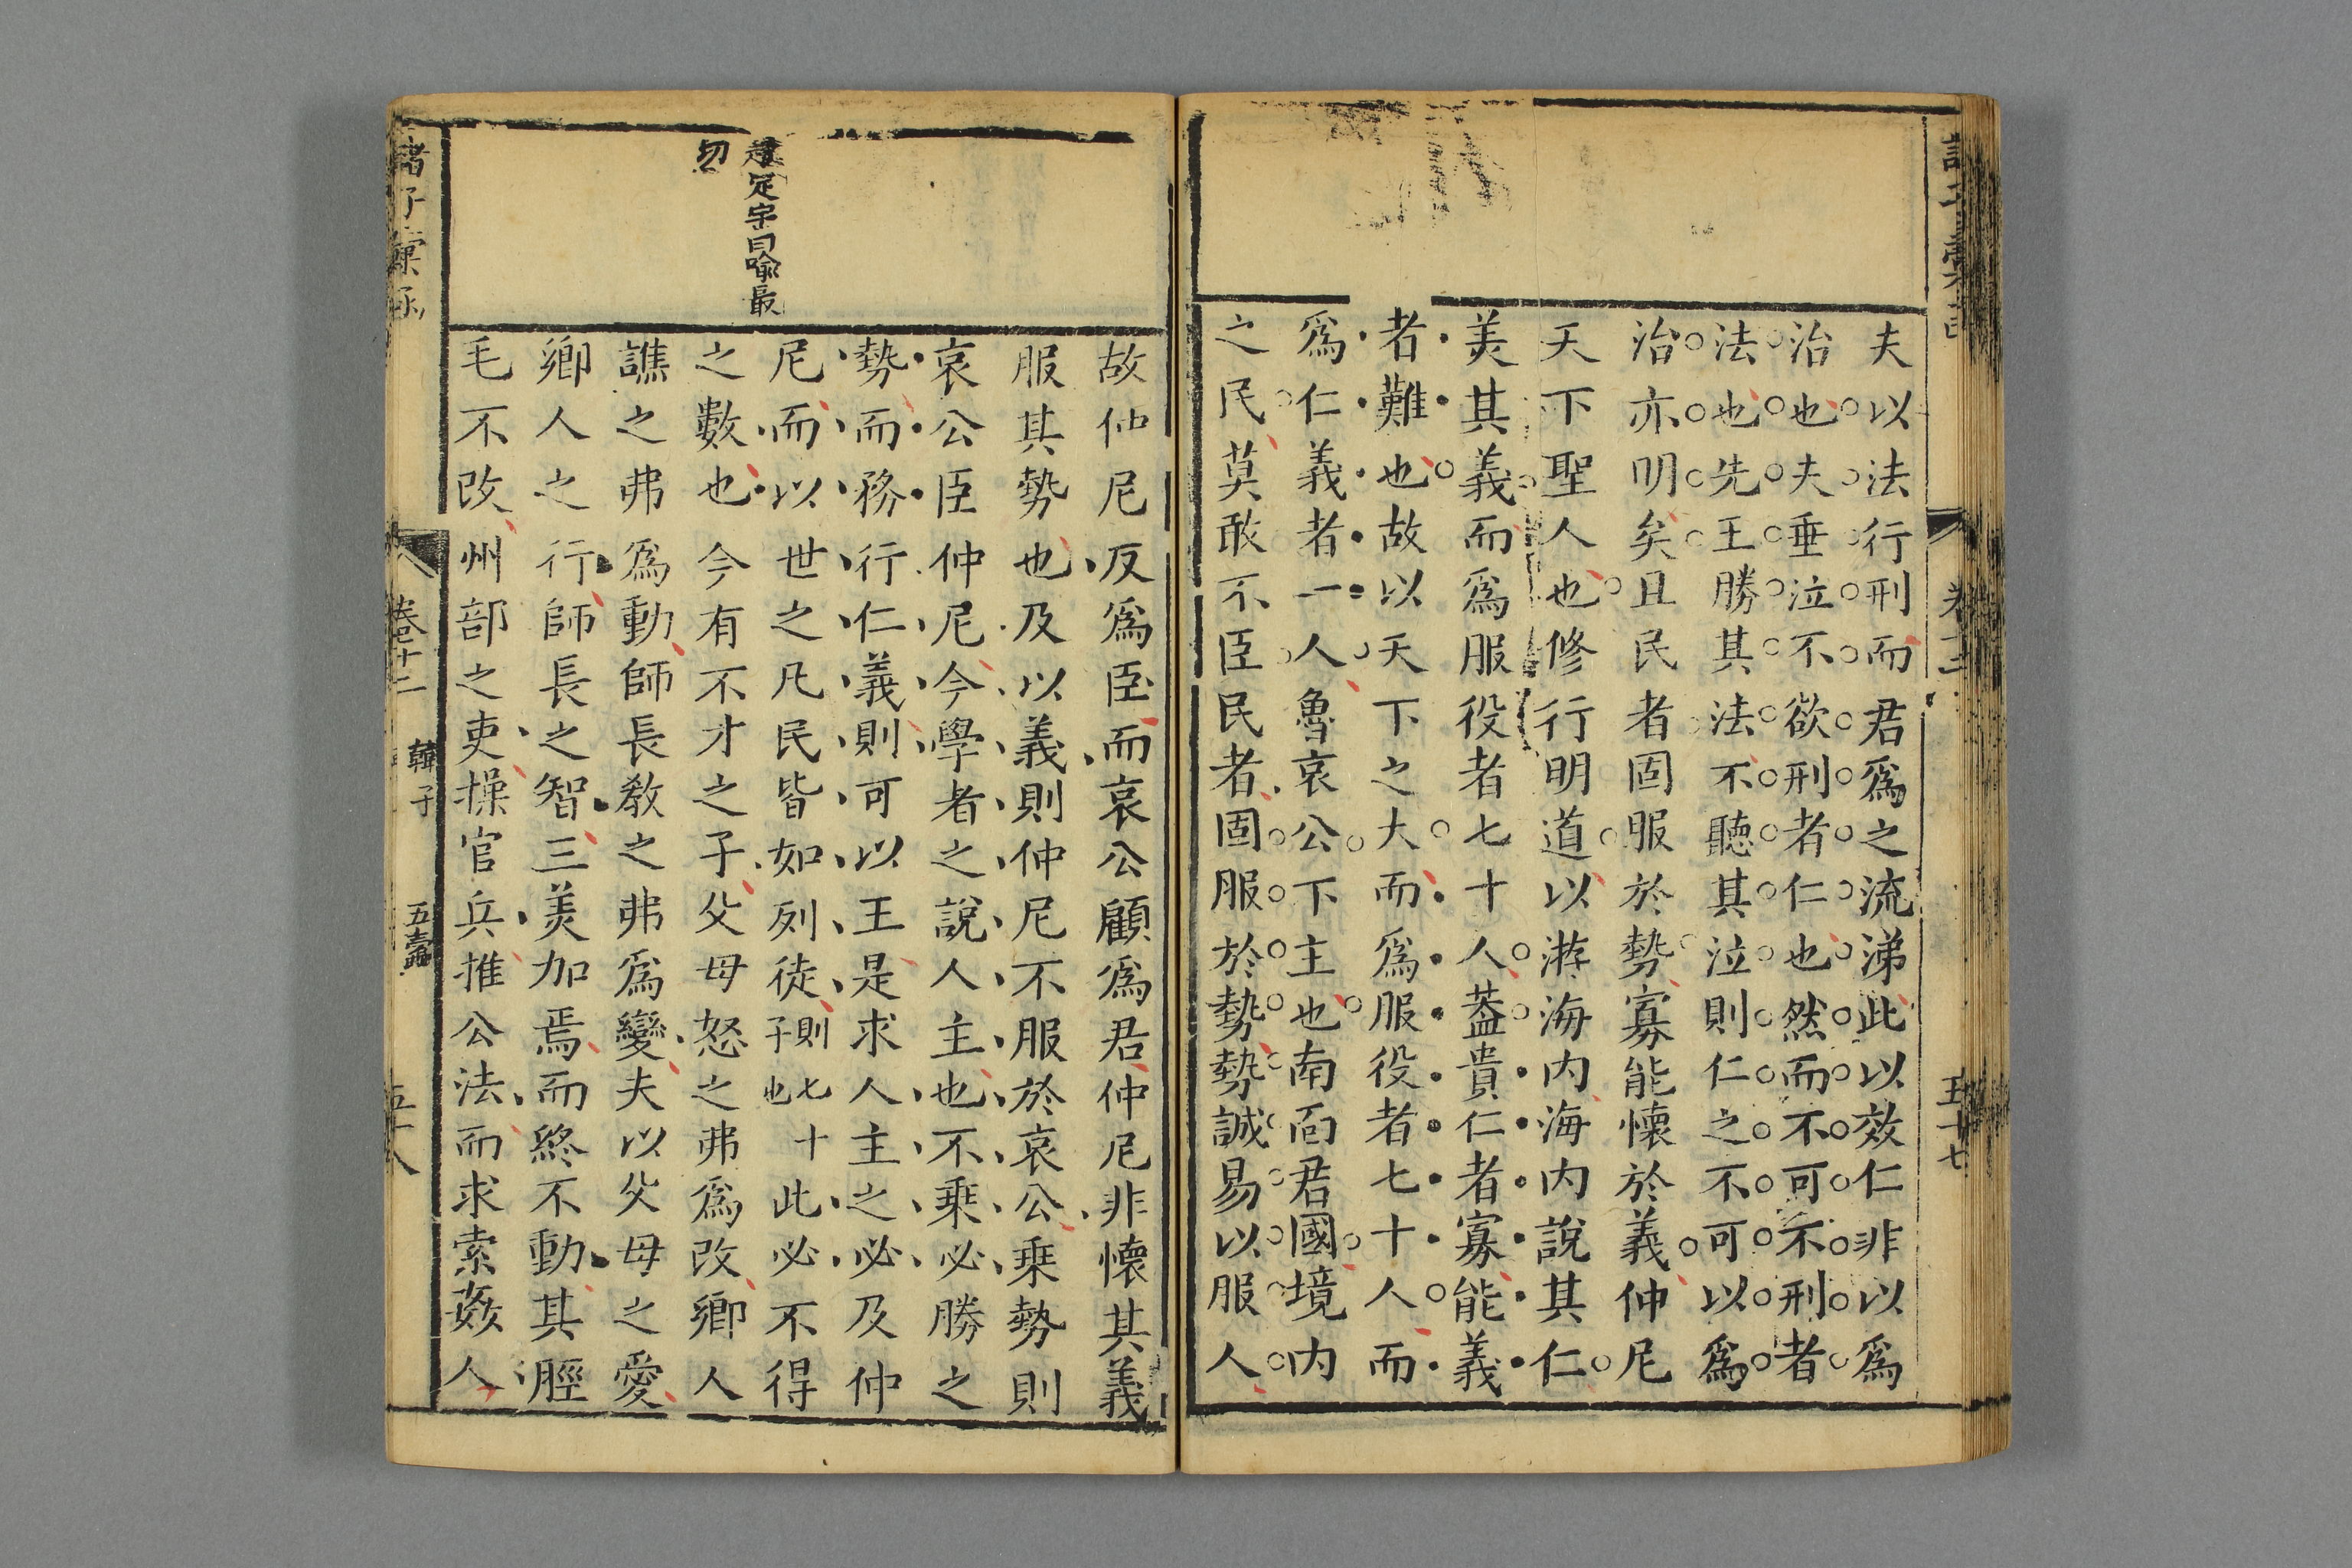 夫以法行刑而君爲之流涕此以效仁非以爲
治也夫垂泣不欲刑者仁也然而不可不刑者
法也先王勝其法不聽其泣則仁之不可以爲
治亦明矣且民者固服於勢寡能懷於義仲尼
天下聖人也修行明道以游海內海內說其仁
美其義而爲服役者七十人蓋貴仁者寡能義
者難也故以天下之大而爲服役者七十人而
爲仁義者一人魯哀公下主也南面君國境內
之民莫敢不臣民者固服於勢勢誠易以服人
卷十二
五十七
定宇曰喻最
切
故仲尼反爲臣而哀公顧爲君仲尼非懷其義
服其勢也及以義則仲尼不服於哀公乗勢則
哀公臣仲尼今學者之說人主也不乗必勝之
勢而務行仁義則可以王是求人主之必及仲
尼而以世之凡民皆如列徒則七十子也此必不得
之數也今有不才之子父母怒之弗爲改鄉人
譙之弗爲動師長教之弗爲變夫以父母之愛
鄉人之行師長之智三美加焉而終不動其脛
毛不改州部之吏操官兵推公法而求索姦人
諸子彙函
卷十二
韓子
五蠹
五十八